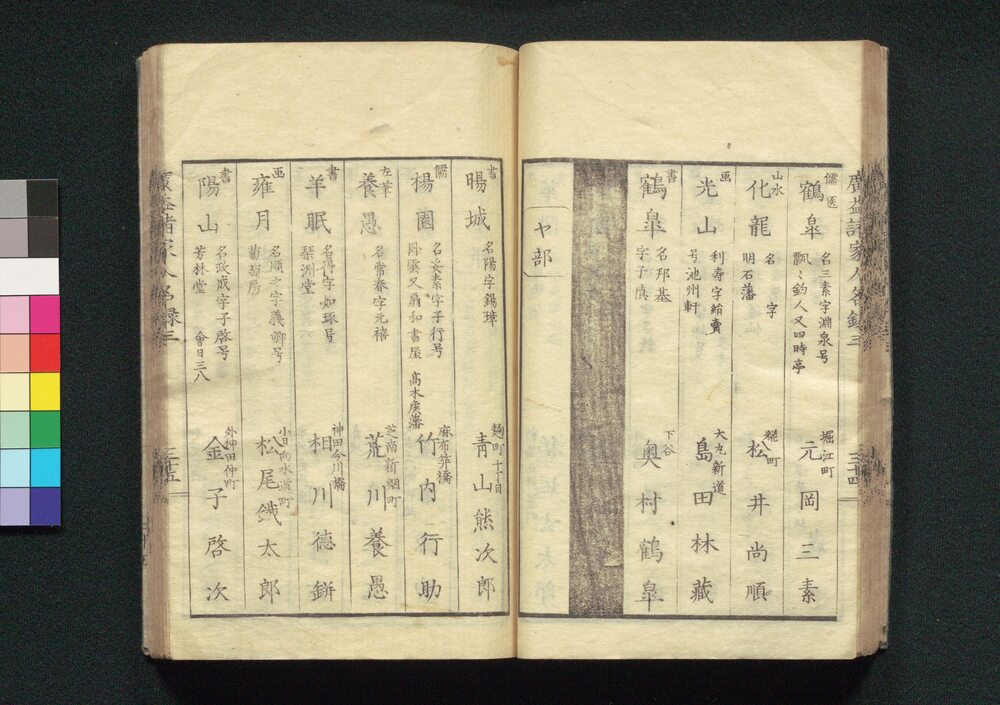 廣益諸家人名録三
三十四
儒医
鶴皐
名三素字淵泉号
飄々釣人又四時亭
堀江町
元岡三素
山水
化龍
名　字
明石藩
糀町
松井尚順
画
光山
利寿字
号池州軒
大丸新道
島田林藏
書
鶴皐
名邦基
字子慎
下谷
奥村鶴皐
ヤ部
書
暘城
名陽字錫璋
麹町十丁目
青山熊次郎
儒
楊園
名妥素字子行号
卧雲又扇和書屋
高木廣藩
麻布笄橋
竹内行助
左筆
養愚
名常春字元禧
芝南新網町
荒川養愚
書
羊眠
名得字如琢号
琹洲堂
神田今川橋
相川徳鉼
画
雍月
名順之字義卿号
葡萄房
小日向水道町
松尾鐵太郎
書
陽山
名政成字子啓号
芳林堂　會日三八
外神田仲町
金子啓次
廣益諸家人名録三
三十五